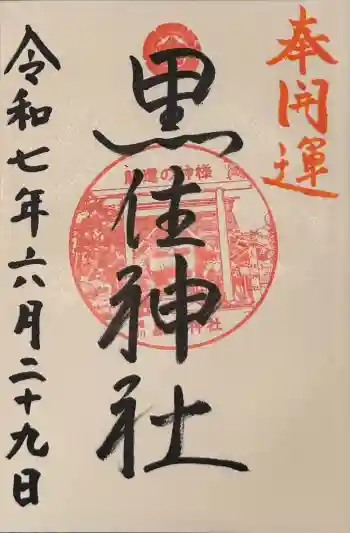 奉開運
黒住神社
開運の神様
令和七年六月二十九日